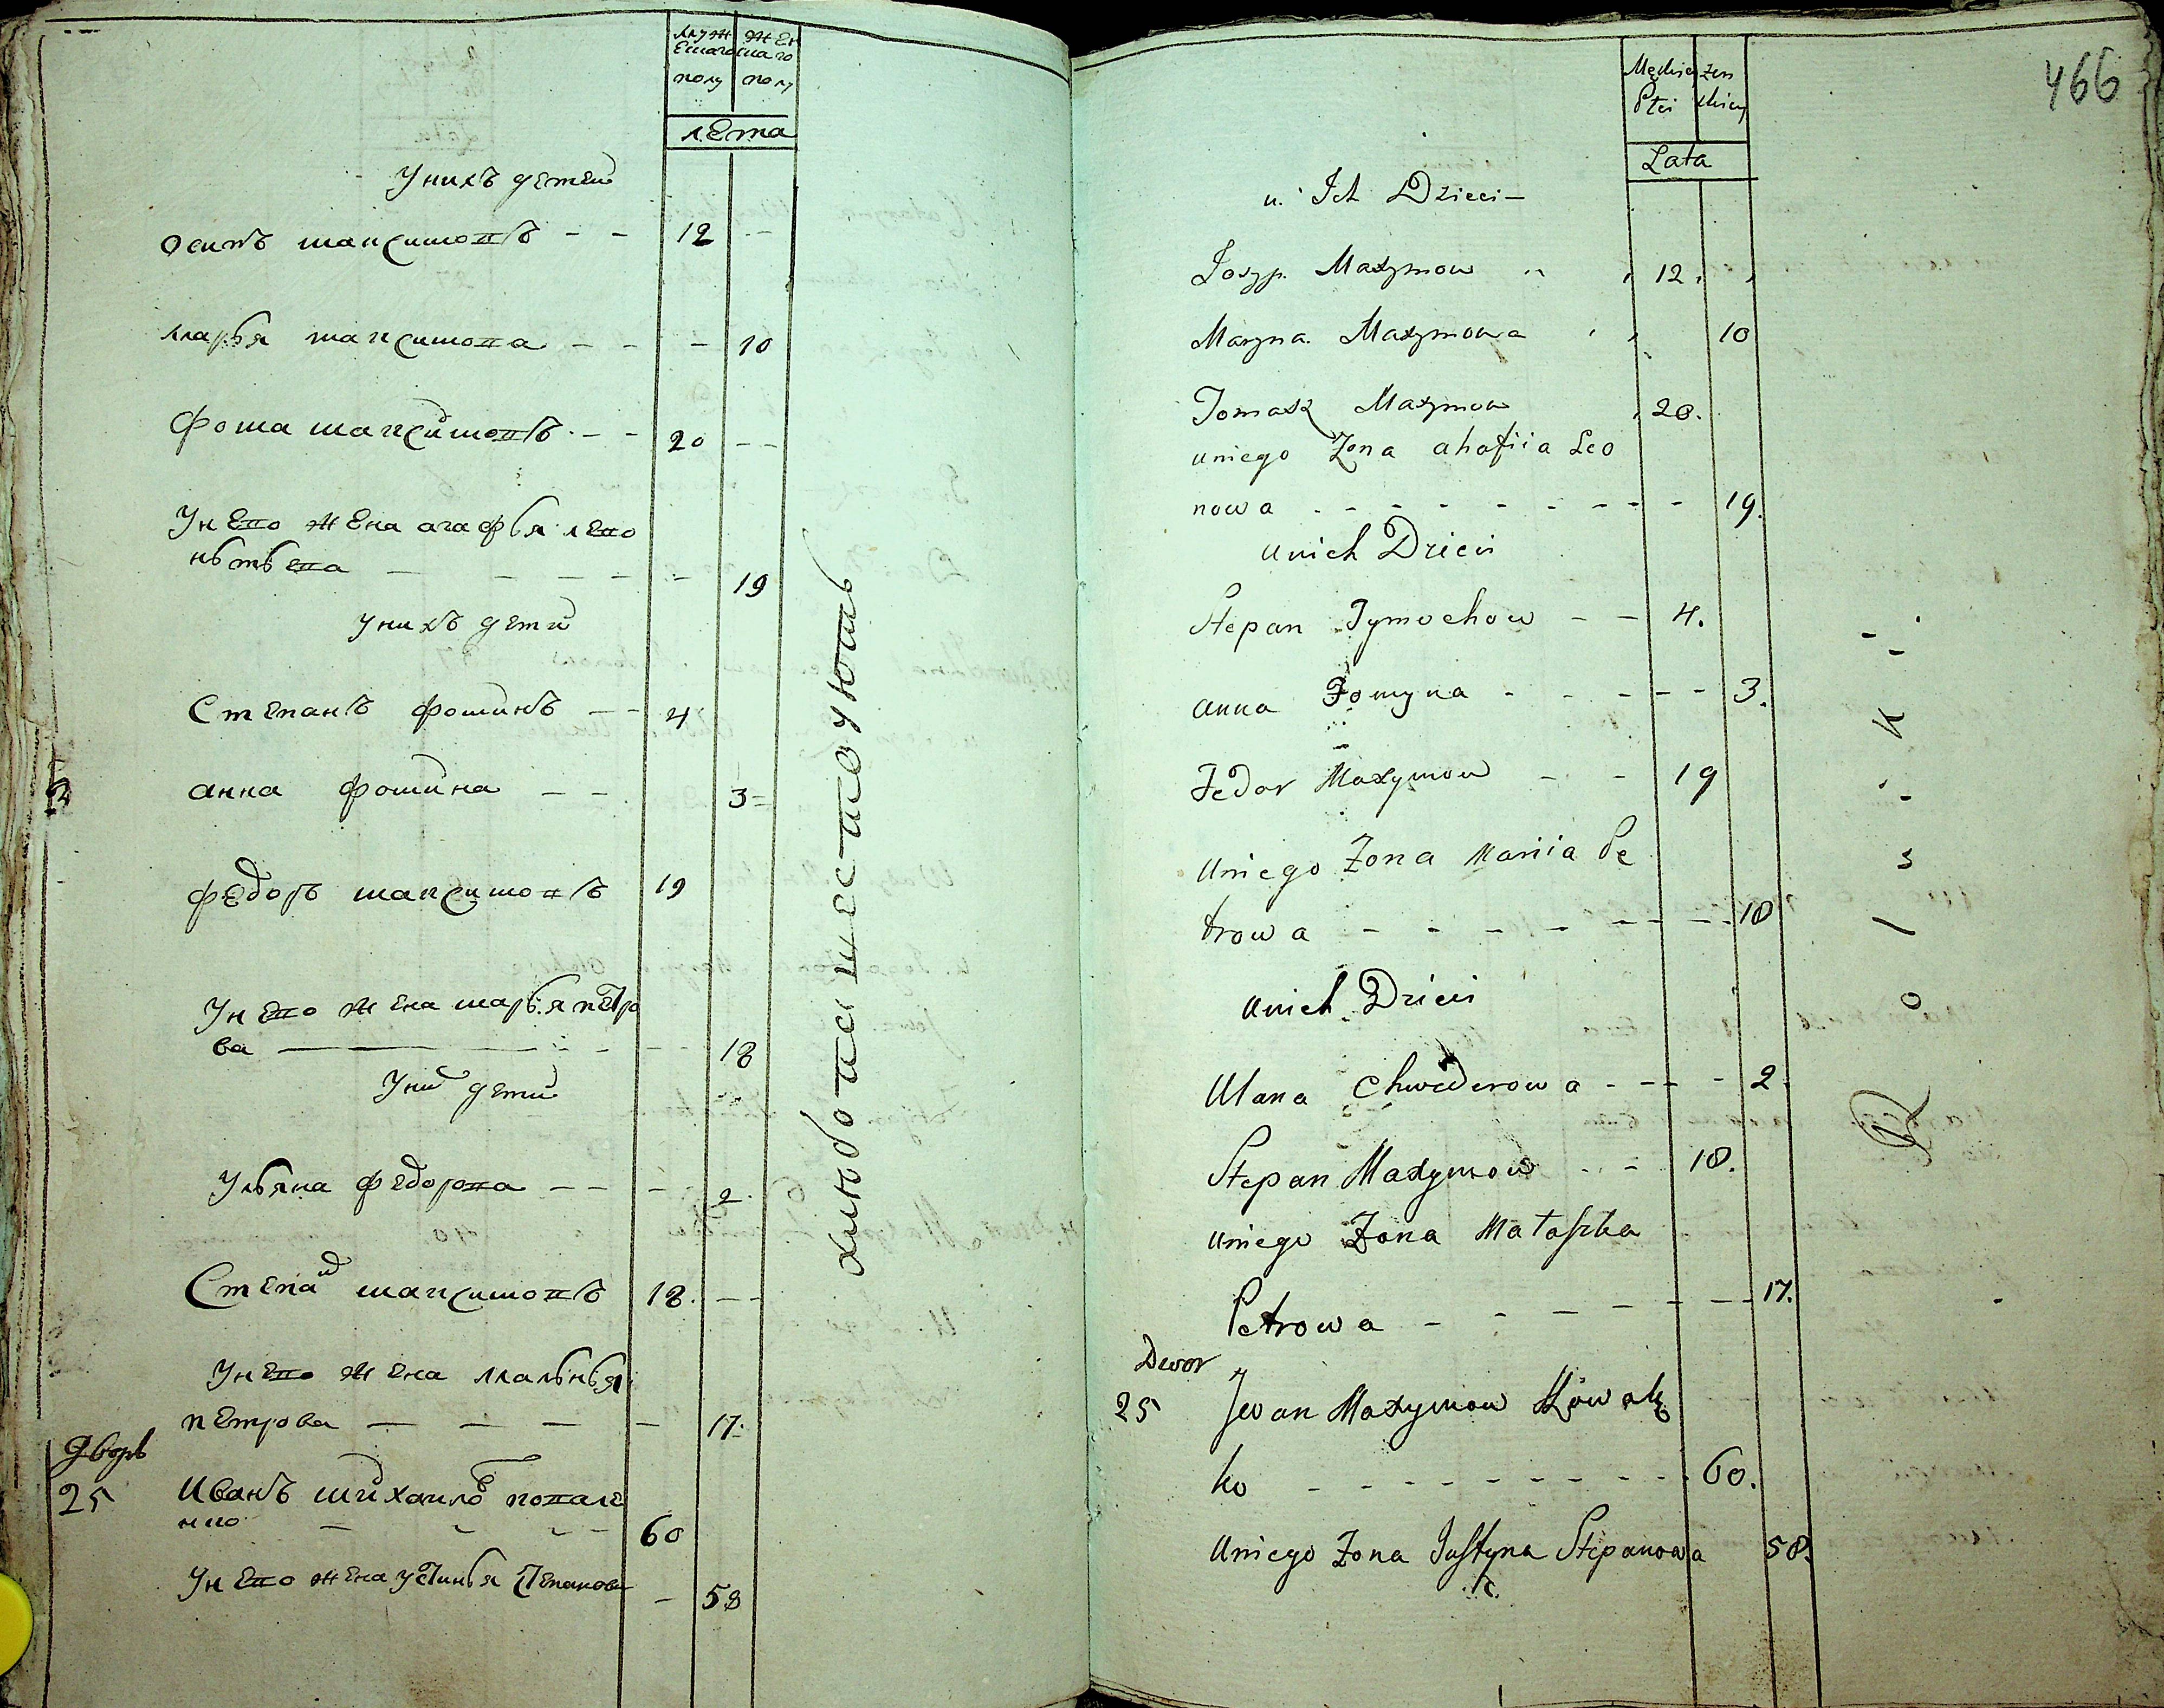 мужескаго полу
женскаго полу
лета
У нихъ детей
осипъ максимовъ - - 12 - -
марья максимова - - - 10
фома максимовъ - - 20 - -
У него жена агафья лево
нътьева - - - - - - 19
у нихъ дети
Степанъ фоминъ - - 4
анна фомина - - 3
федоръ максимовъ 19
У него жена марья петро
ва - - - - 18
У них дети
Ульяна федорова - - - 2
Степан максимовъ 18 - -
У него жена маланья
петрова - - - - 17
дворъ
25 Иванъ михайлов ковале
нко - - - - 60
У него жена устинья степанова - 58
хлюботаи шествують
466
Męskiej Płci
żeńskiey
Lata
u Ich Dzieci -
Josyp Maxymow 12.
Maryna Maxymowa 10
Tomasz Maxymow 20.
u niego Żona ahafiia Leo
nowa - - - - - - - - - 19.
u nich Dzieci
Stepan Tymochow - - 4.
anna Fomyna - - - - - 3.
Fedor Maxymow - - 19
U niego Żona Mariia Pe
trowa - - - - - - - - 18
u nich Dzieci
Ulana Chwederowa - - - - 2
Stepan Maxymow - - 18.
u niego Żona Matoszka
Petrowa - - - - - - - 17.
Dwor
25 Jwan Maxymow Kowal
ko - - - - - - - - - 60.
U niego Żona Justyna Stepanowa 58.